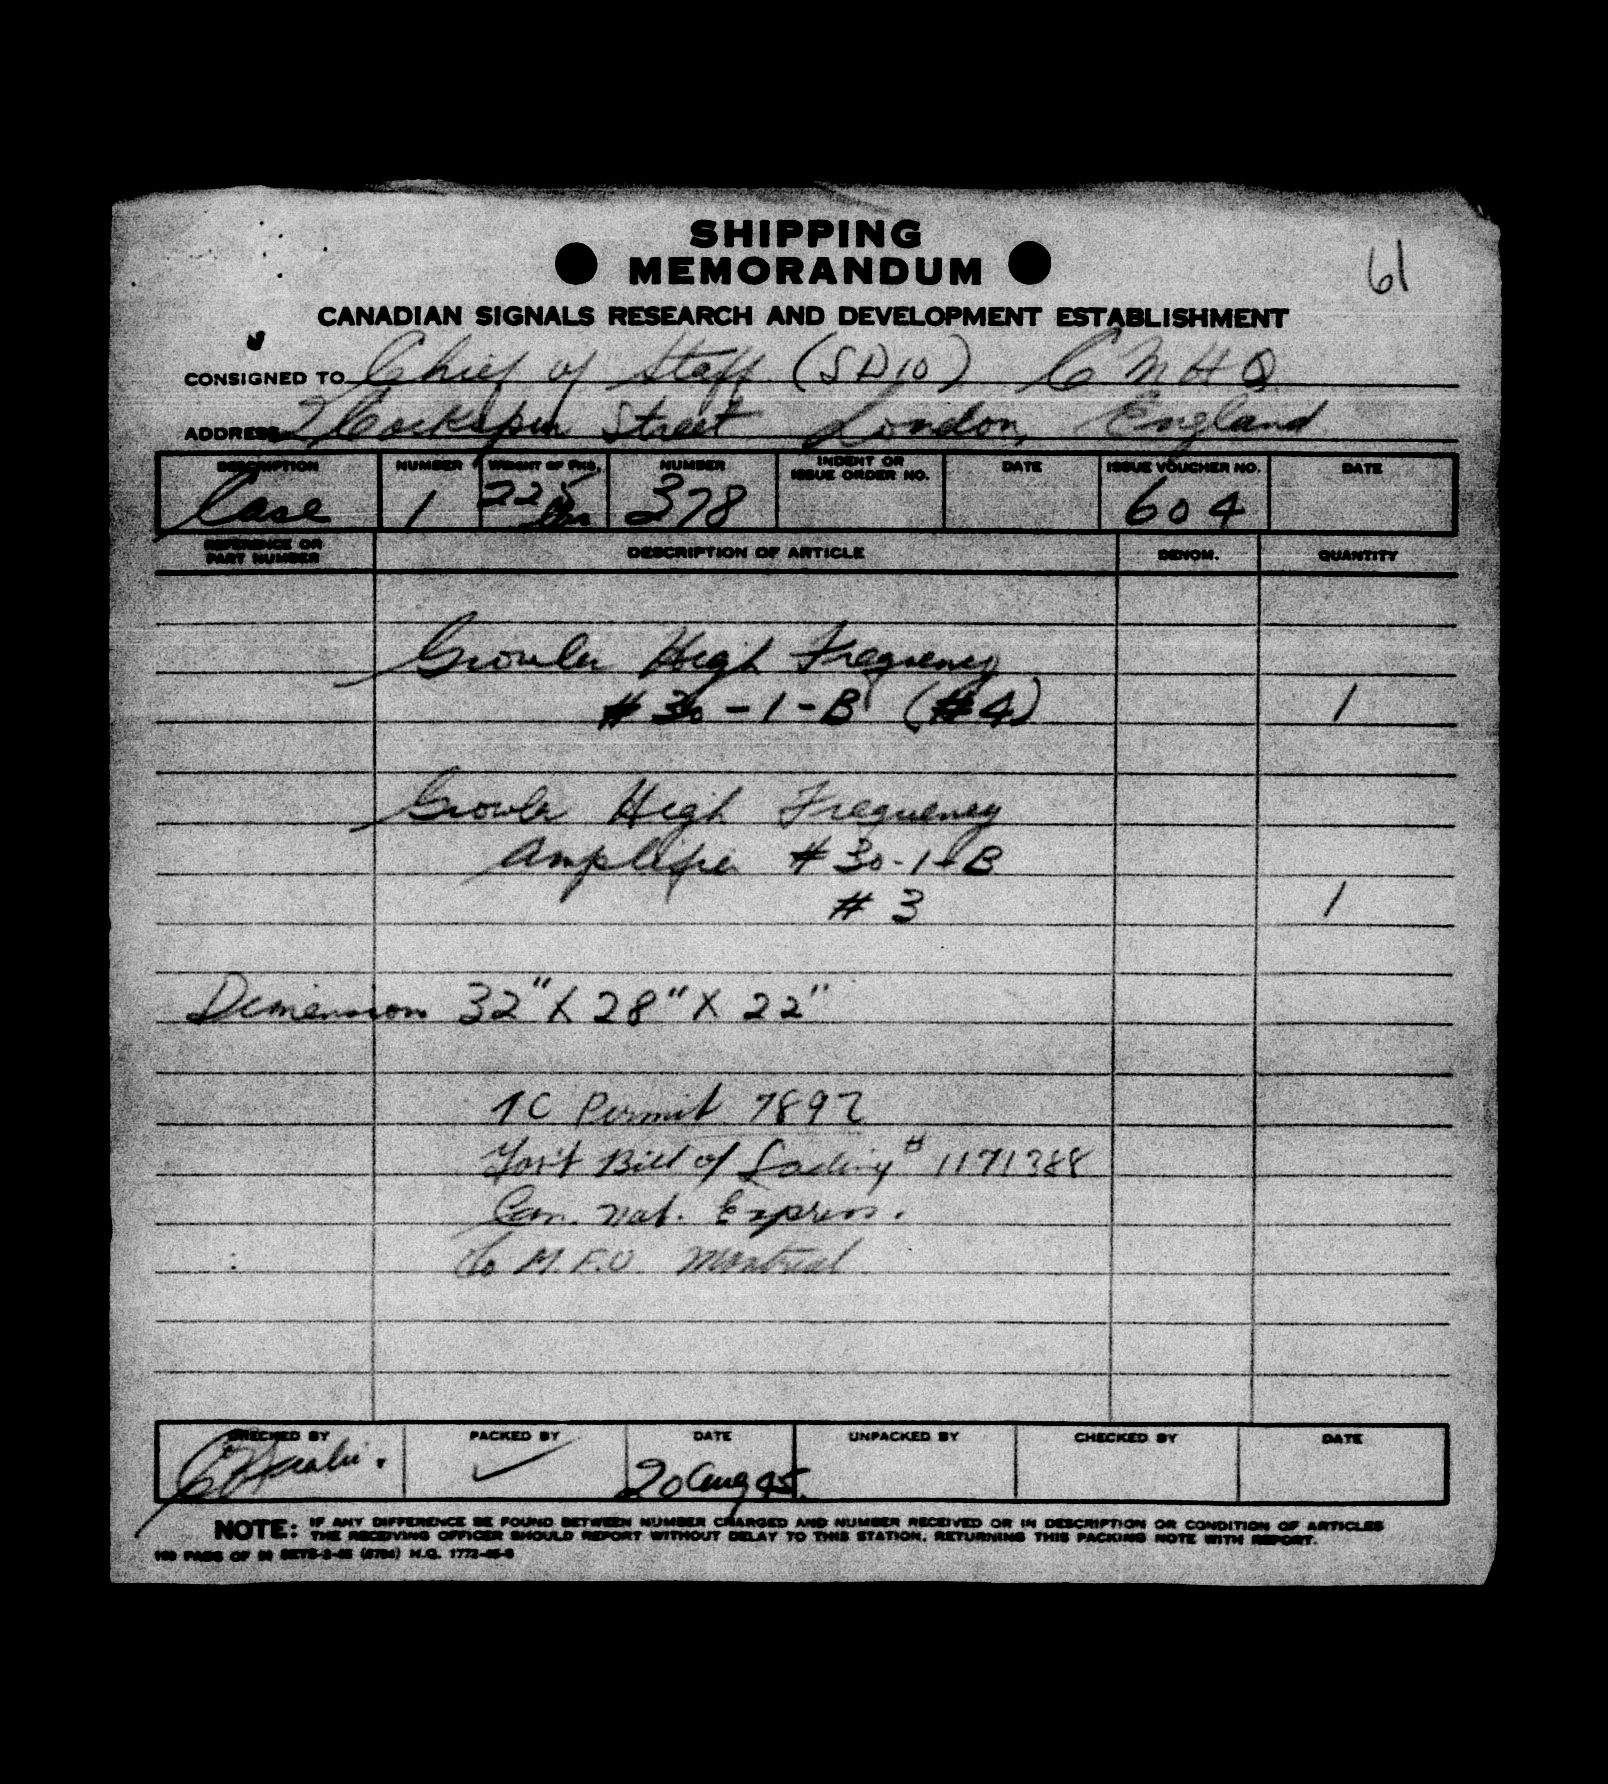 SHIPPING
MEMORANDUM
61
CANADIAN SIGNALS RESEARCH AND DEVELOPMENT ESTABLISHMENT
CONSIGNED TO Chief of Staff (SD10) CMHQ
ADDRESS 2 Cockspur Street London, England
DESCRIPTION NUMBER WEIGHT OF PKG. NUMBER INDENT OR ISSUE ORDER NO. DATE ISSUE VOUCHER NO. DATE
Case 1 225 lbs 378 604
REFERENCE OR PART NUMBER DESCRIPTION OF ARTICLE DENOM. QUANTITY
Growler High Frequency
# 30-1-B (#4) 1
Growler High Frequency
Amplifier # 30-1-B
# 3 1
Dimension 32" X 28" X 22"
TC Permit 7897
Gov't Bill of Lading # 1171388
Can. Nat. Express.
To M.F.O Montreal
CHECKED BY PACKED BY DATE UNPACKED BY CHECKED BY DATE
20 Aug 45.
NOTE: IF ANY DIFFERENCE BE FOUND BETWEEN NUMBER CHARGED AND NUMBER RECEIVED OR IN DESCRIPTION OR CONDITION OF ARTICLES
THE RECEIVING OFFICER SHOULD REPORT WITHOUT DELAY TO THIS STATION, RETURNING THIS PACKING NOTE WITH REPORT.
PADS OF H.Q. 1772-45-8